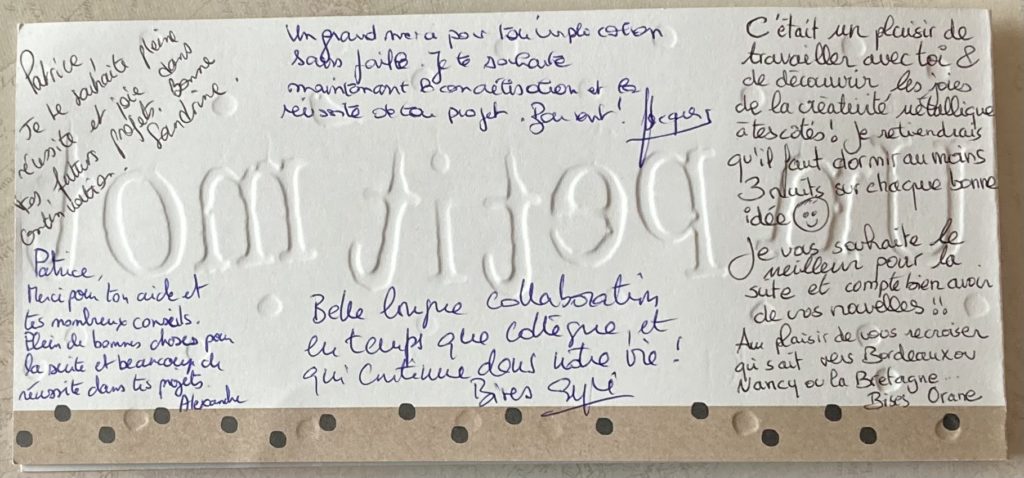 Patrice,
Je te souhaite pleine
réussite et joie dans
tes futurs projets. Bonne
continuation.
Sandrine.
Un grand merci pour ton implication
sans faille. Je te souhaite
maintenant la concrétisation et la
réussite de ton projet. Bon vent! Jacques
C'était un plaisir de
travailler avec toi &
de découvrir les joies
de la créativité métallique
à tes côtés! Je retiendrais
qu'il faut dormir au moins
3 nuits sur chaque bonne
idée
Je vous souhaite le
meilleur pour la
suite et compte bien avoir
de vos nouvelles!!
Au plaisir de vous recroiser
qui sait vers Bordeaux ou
Nancy ou la Bretagne...
Bises Orane
Patrice,
Merci pour ton aide et
tes nombreux conseils.
Plein de bonnes choses pour
la suite et beaucoup de
réussite dans tes projets.
Alexandre
Belle longue collaboration
en temps que collègue, et
qui continue dans notre vie!
Bises
un petit mot